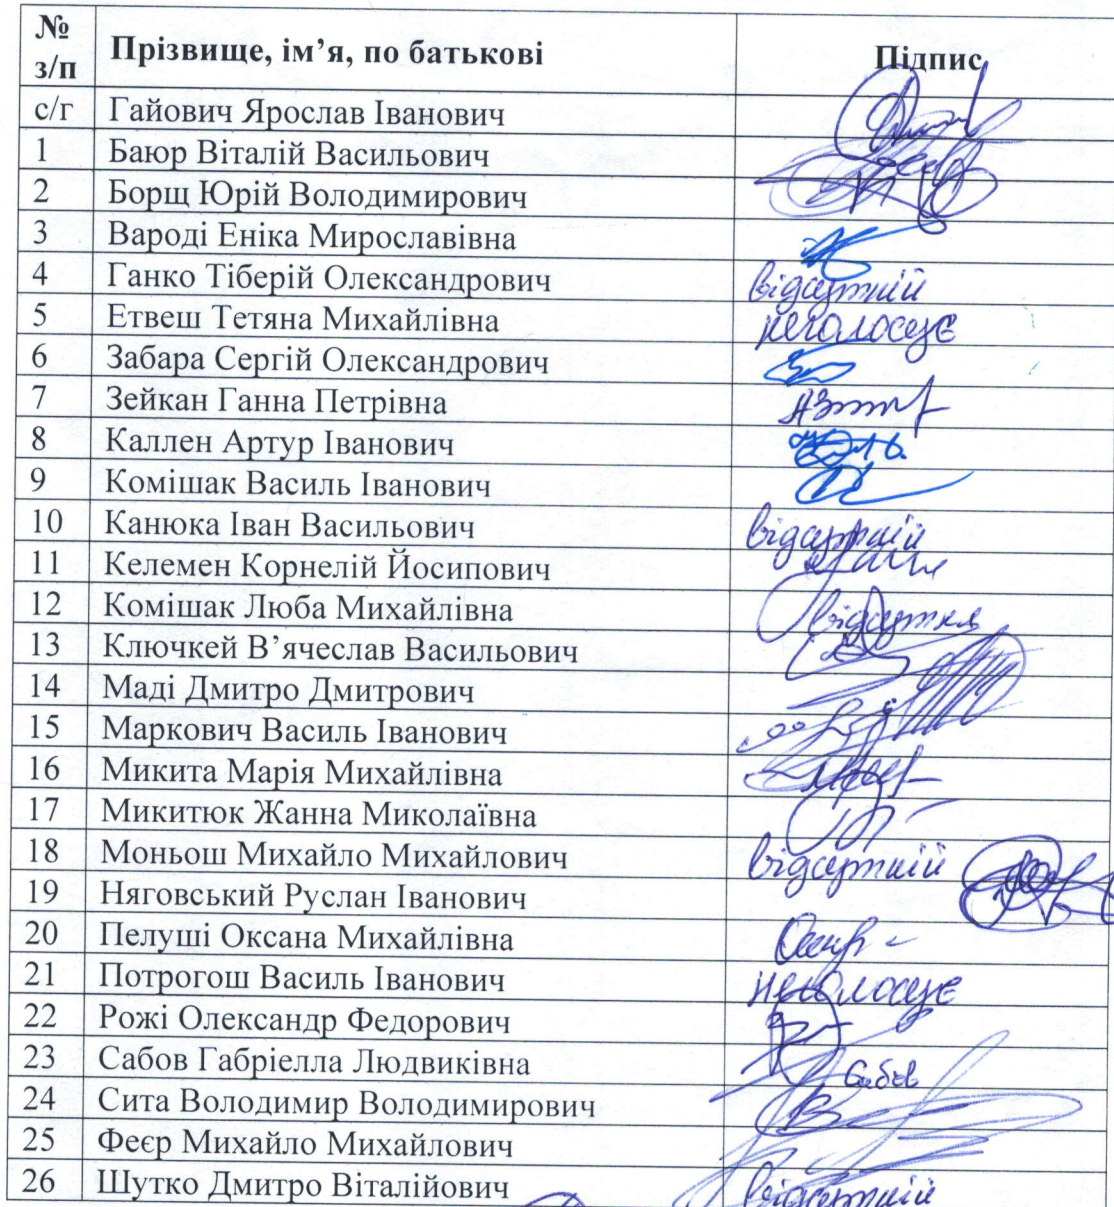 № з/п Прізвище, ім’я, по батькові Підпис
с/г Гайович Ярослав Іванович
1 Баюр Віталій Васильович
2 Борщ Юрій Володимирович
3 Вароді Еніка Мирославівна
4 Ганко Тіберій Олександрович відсутній
5 Етвеш Тетяна Михайлівна не голосує
6 Забара Сергій Олександрович
7 Зейкан Ганна Петрівна
8 Каллен Артур Іванович
9 Комішак Василь Іванович
10 Канюка Іван Васильович відсутній
11 Келемен Корнелій Йосипович
12 Комішак Люба Михайлівна відсутня
13 Ключкей В’ячеслав Васильович
14 Маді Дмитро Дмитрович
15 Маркович Василь Іванович
16 Микита Марія Михайлівна
17 Микитюк Жанна Миколаївна
18 Моньош Михайло Михайлович відсутній
19 Няговський Руслан Іванович
20 Пелуші Оксана Михайлівна
21 Потрогош Василь Іванович не голосує
22 Рожі Олександр Федорович
23 Сабов Габріелла Людвиківна
24 Сита Володимир Володимирович
25 Феєр Михайло Михайлович
26 Шутко Дмитро Віталійович відсутній